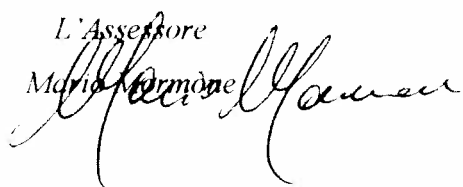 L'Assessore
Mario Marmone